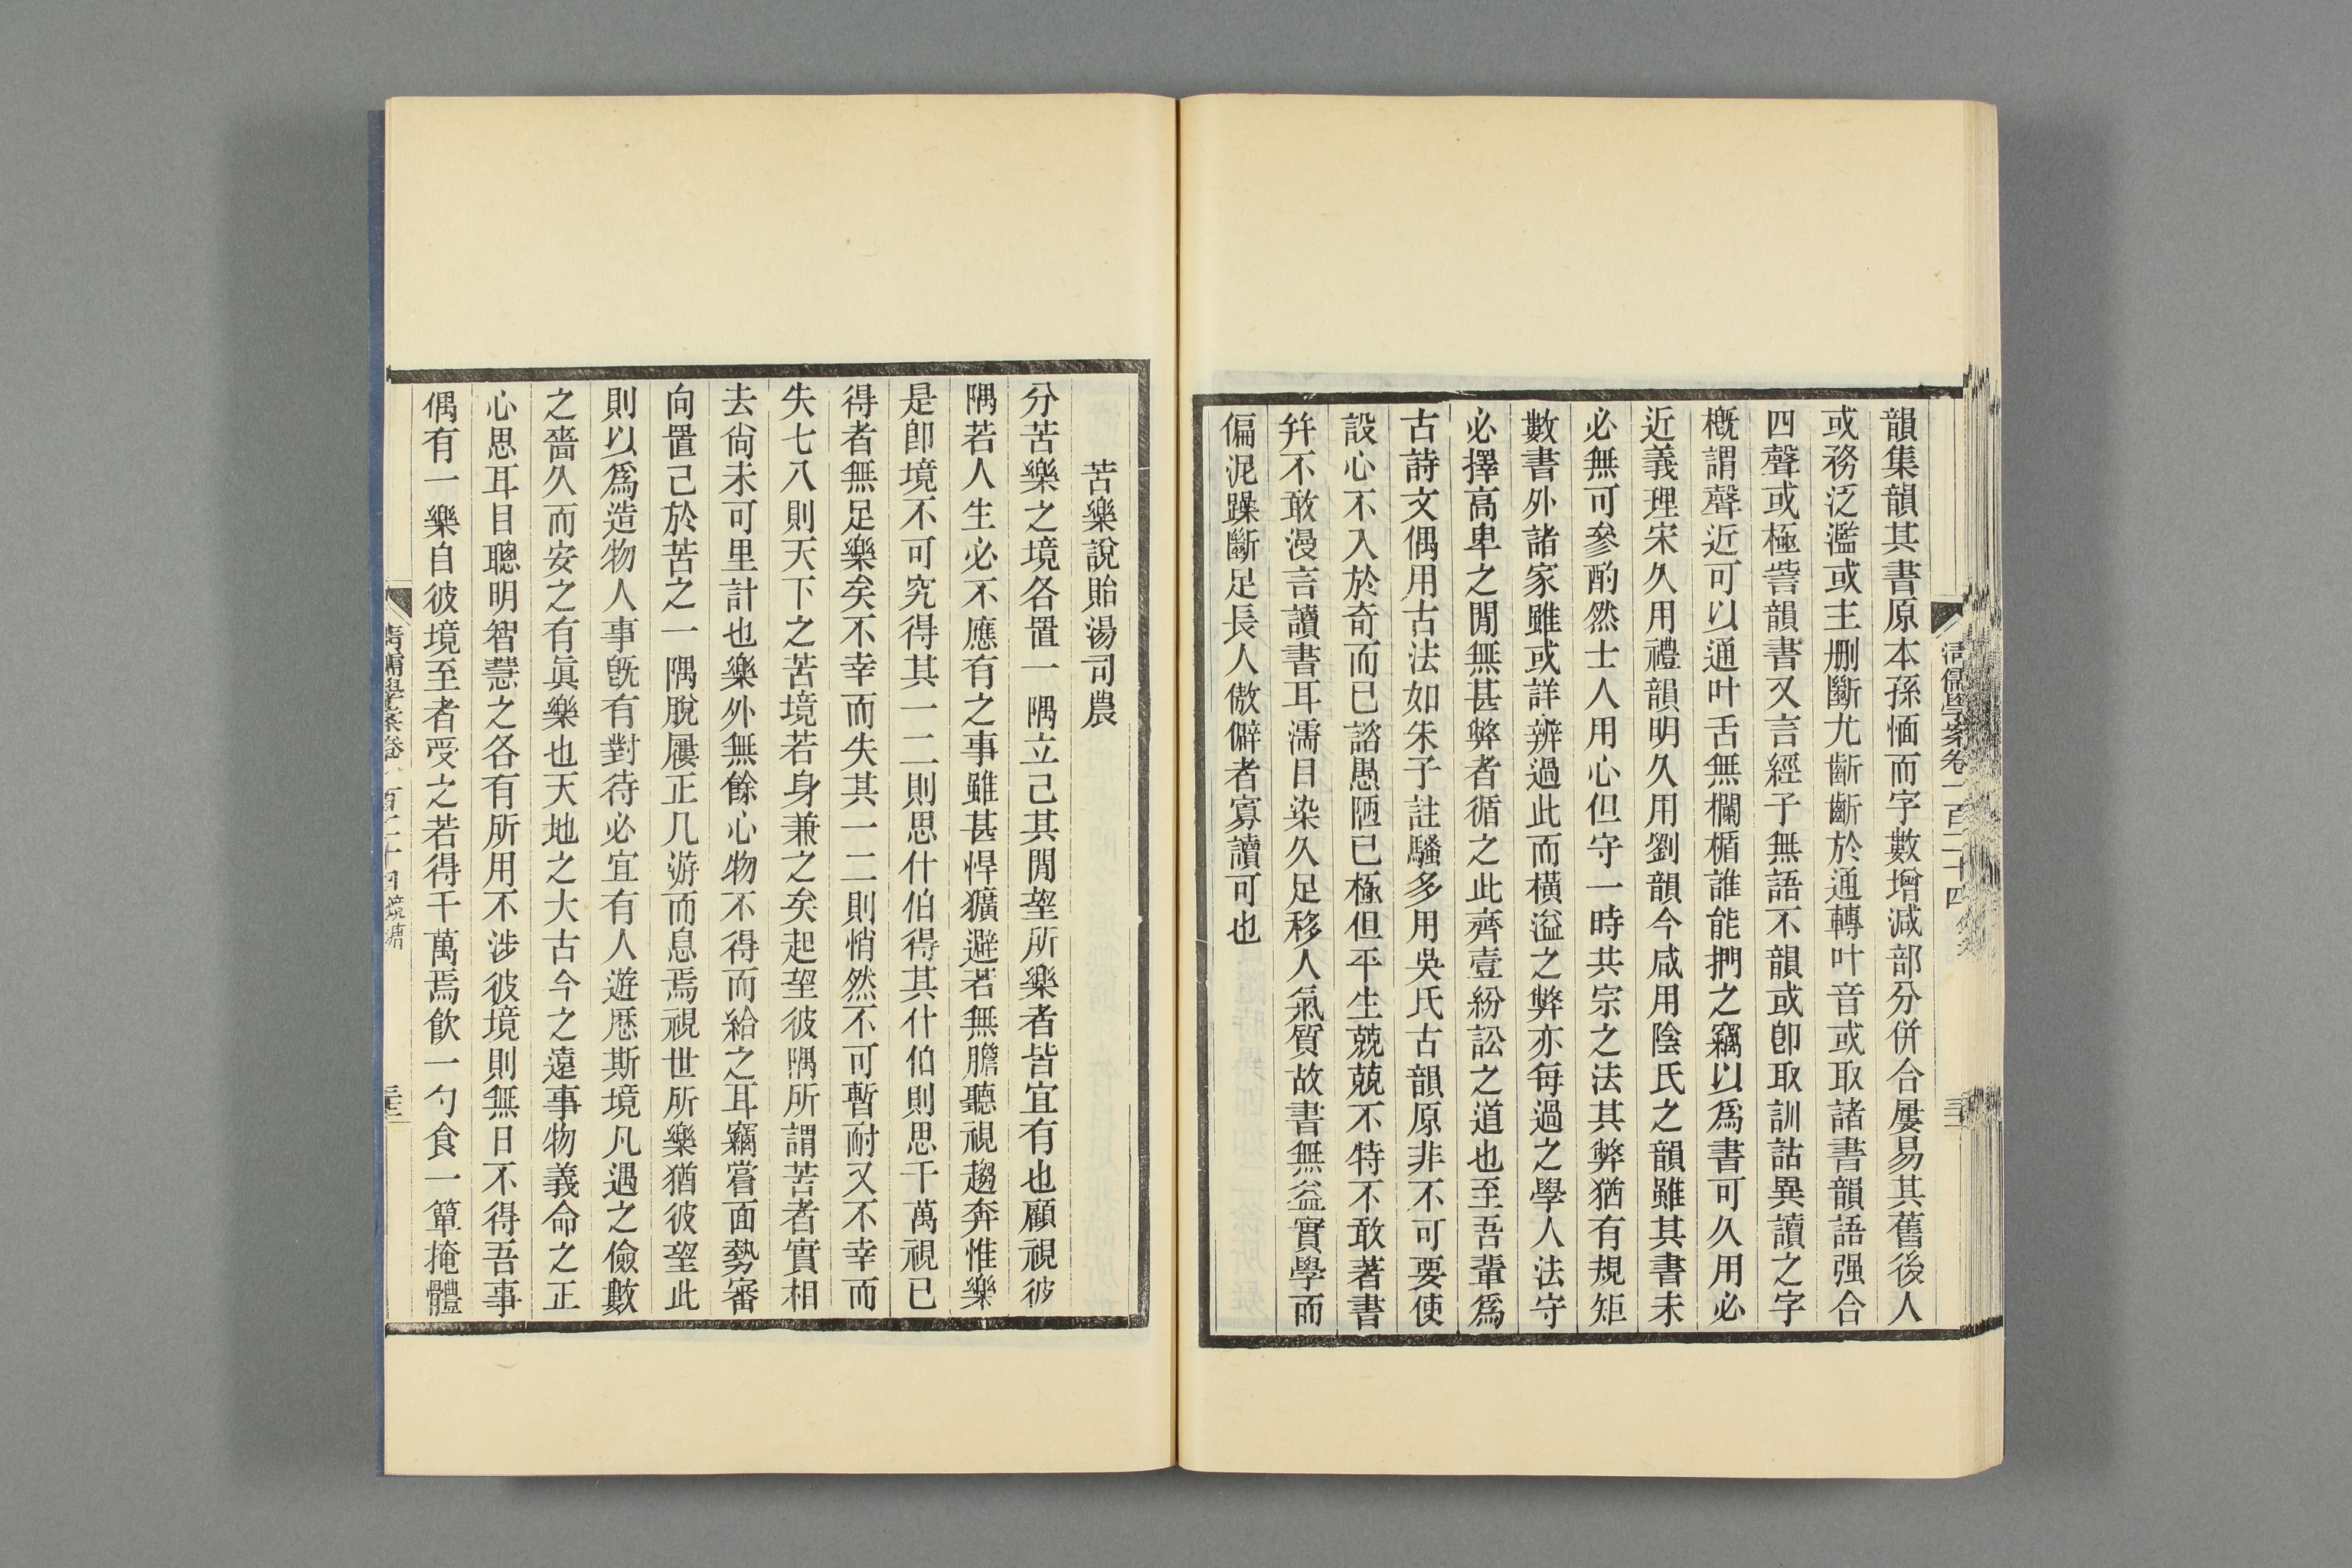 韻集韻其書原本孫愐而字數增減部分併合屢易其舊後人
或務泛濫或主刪斷尤齗齗於通轉叶音或取諸書韻語强合
四聲或極訾韻書又言經子無語不韻或卽取訓詁異讀之字
槪謂聲近可以通叶舌無欄楯誰能捫之竊以爲書可久用必
近義理宋久用禮韻明久用劉韻今咸用陰氏之韻雖其書未
必無可參酌然士人用心但守一時共宗之法其弊猶有規矩
數書外諸家雖或詳辨過此而橫溢之弊亦每過之學人法守
必擇高卑之閒無甚弊者循之此齊壹紛訟之道也至吾輩爲
古詩文偶用古法如朱子註騷多用吳氏古韻原非不可要使
設心不入於奇而已諮愚陋已極但平生兢兢不特不敢著書
幷不敢漫言讀書耳濡目染久足移人氣質故書無益實學而
偏泥躁斷足長人傲僻者寡讀可也
清儒學案卷一百二十四
苦樂說貽湯司農
分苦樂之境各置一隅立己其閒朢所樂者皆宜有也顧視彼
隅若人生必不應有之事雖甚悍獷避若無膽聽視趨奔惟樂
是卽境不可究得其一二則思什伯得其什伯則思千萬視已
得者無足樂矣不幸而失其一二則悄然不可暫耐又不幸而
失七八則天下之苦境若身兼之矣起朢彼隅所謂苦者實相
去尙未可里計也樂外無餘心物不得而給之耳竊嘗面勢審
向置己於苦之一隅脫屨正几游而息焉視世所樂猶彼朢此
則以爲造物人事旣有對待必宜有人遊歷斯境凡遇之儉數
之嗇久而安之有眞樂也天地之大古今之遠事物義命之正
心思耳目聰明智慧之各有所用不涉彼境則無日不得吾事
偶有一樂自彼境至者受之若得千萬焉飮一勺食一簞掩體
清儒學案卷一百二十四